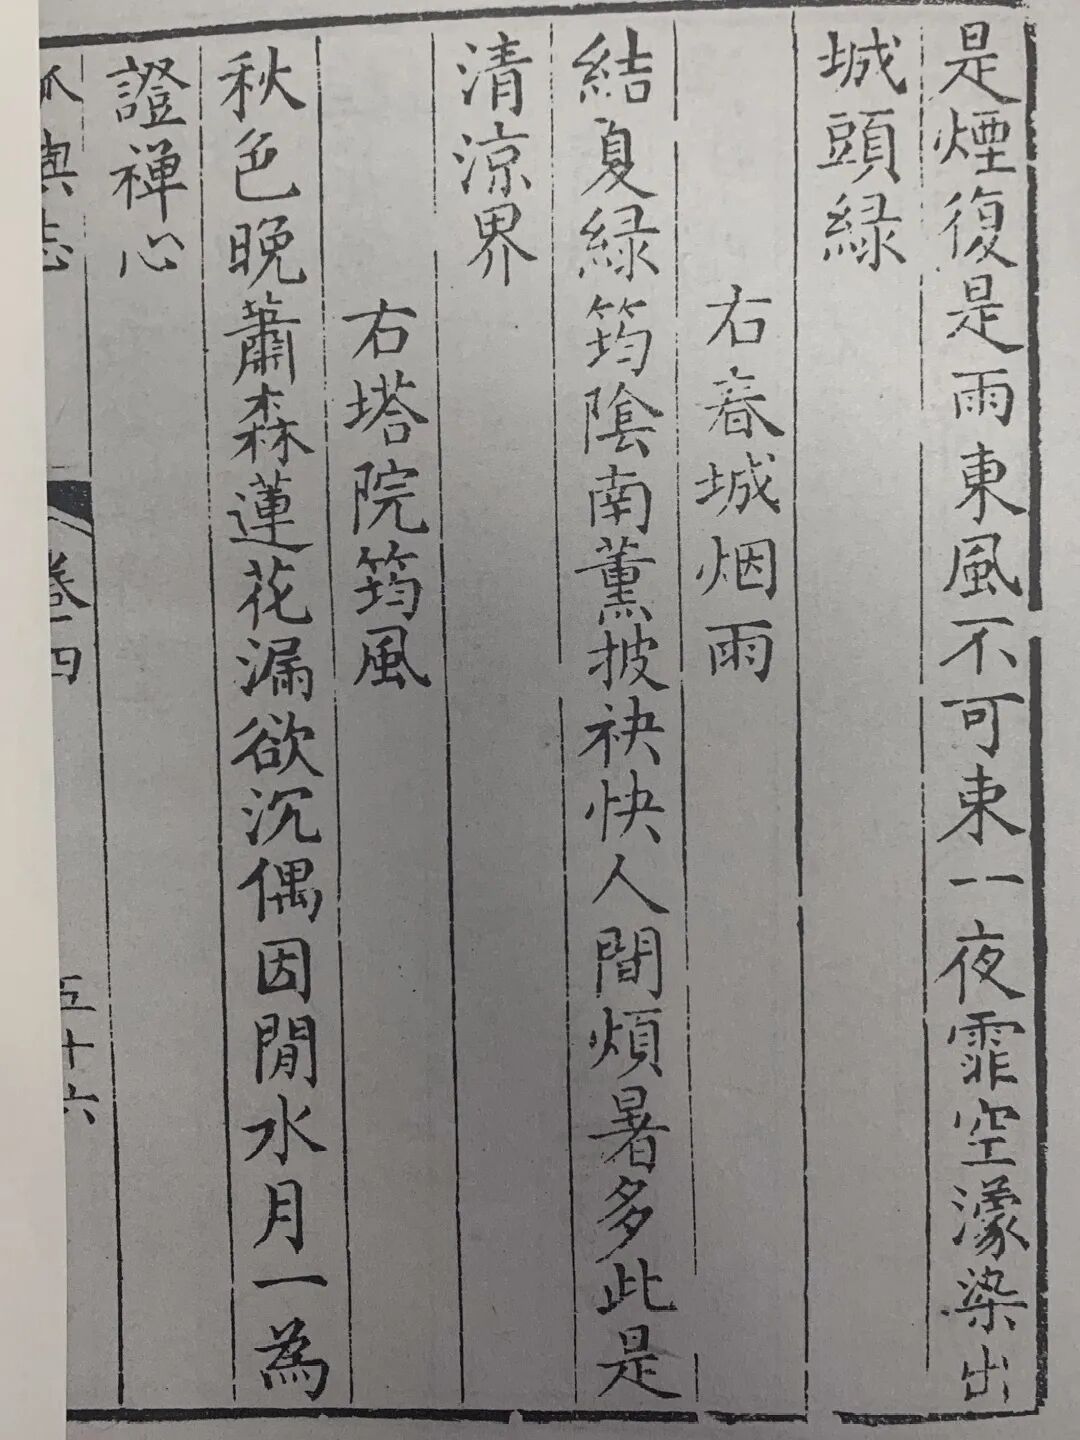 是煙復是雨東風不可東一夜霏空濛染出
城頭緑
右春城烟雨
結夏緑筠陰南薰披袂快人間煩暑多此是
清凉界
右塔院筠風
秋色晚蕭森蓮花漏欲沉偶因閒水月一為
證禅心
輿志
卷四
五十六